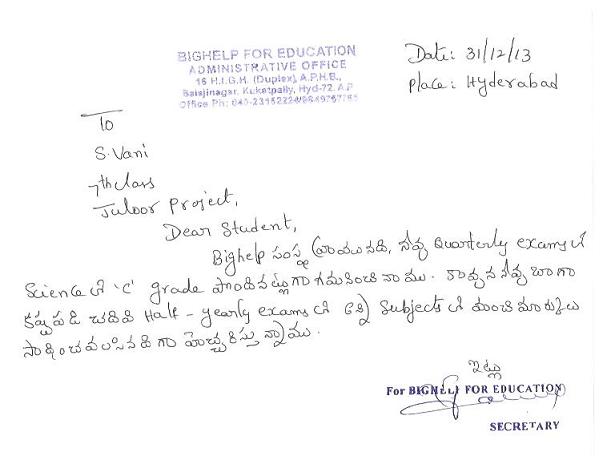 BIGHELP FOR EDUCATION
ADMINISTRATIVE OFFICE
16 H.I.G.H. (Duplex), A.P.H.B.,
Balajinagar, Kukatpally, Hyd-72. A.P
Office Ph: 040-23152224/9849767785
Date: 31/12/13
Place: Hyderabad
To
S. Vani
7th class
Juloor Project,
Dear Student,
Bighelp సంస్థ వ్రాయునది, నీవు Quarterly exams లో
Science లో 'C' grade పొందినట్లుగా గమనించినాము. కావున నీవు బాగా
కష్టపడి చదివి Half - yearly exams లో అన్ని Subjects లో మంచి మార్కులు
సాధించవలసినదిగా హెచ్చరిస్తున్నాము.
ఇట్లు
For BIGHELP FOR EDUCATION
SECRETARY